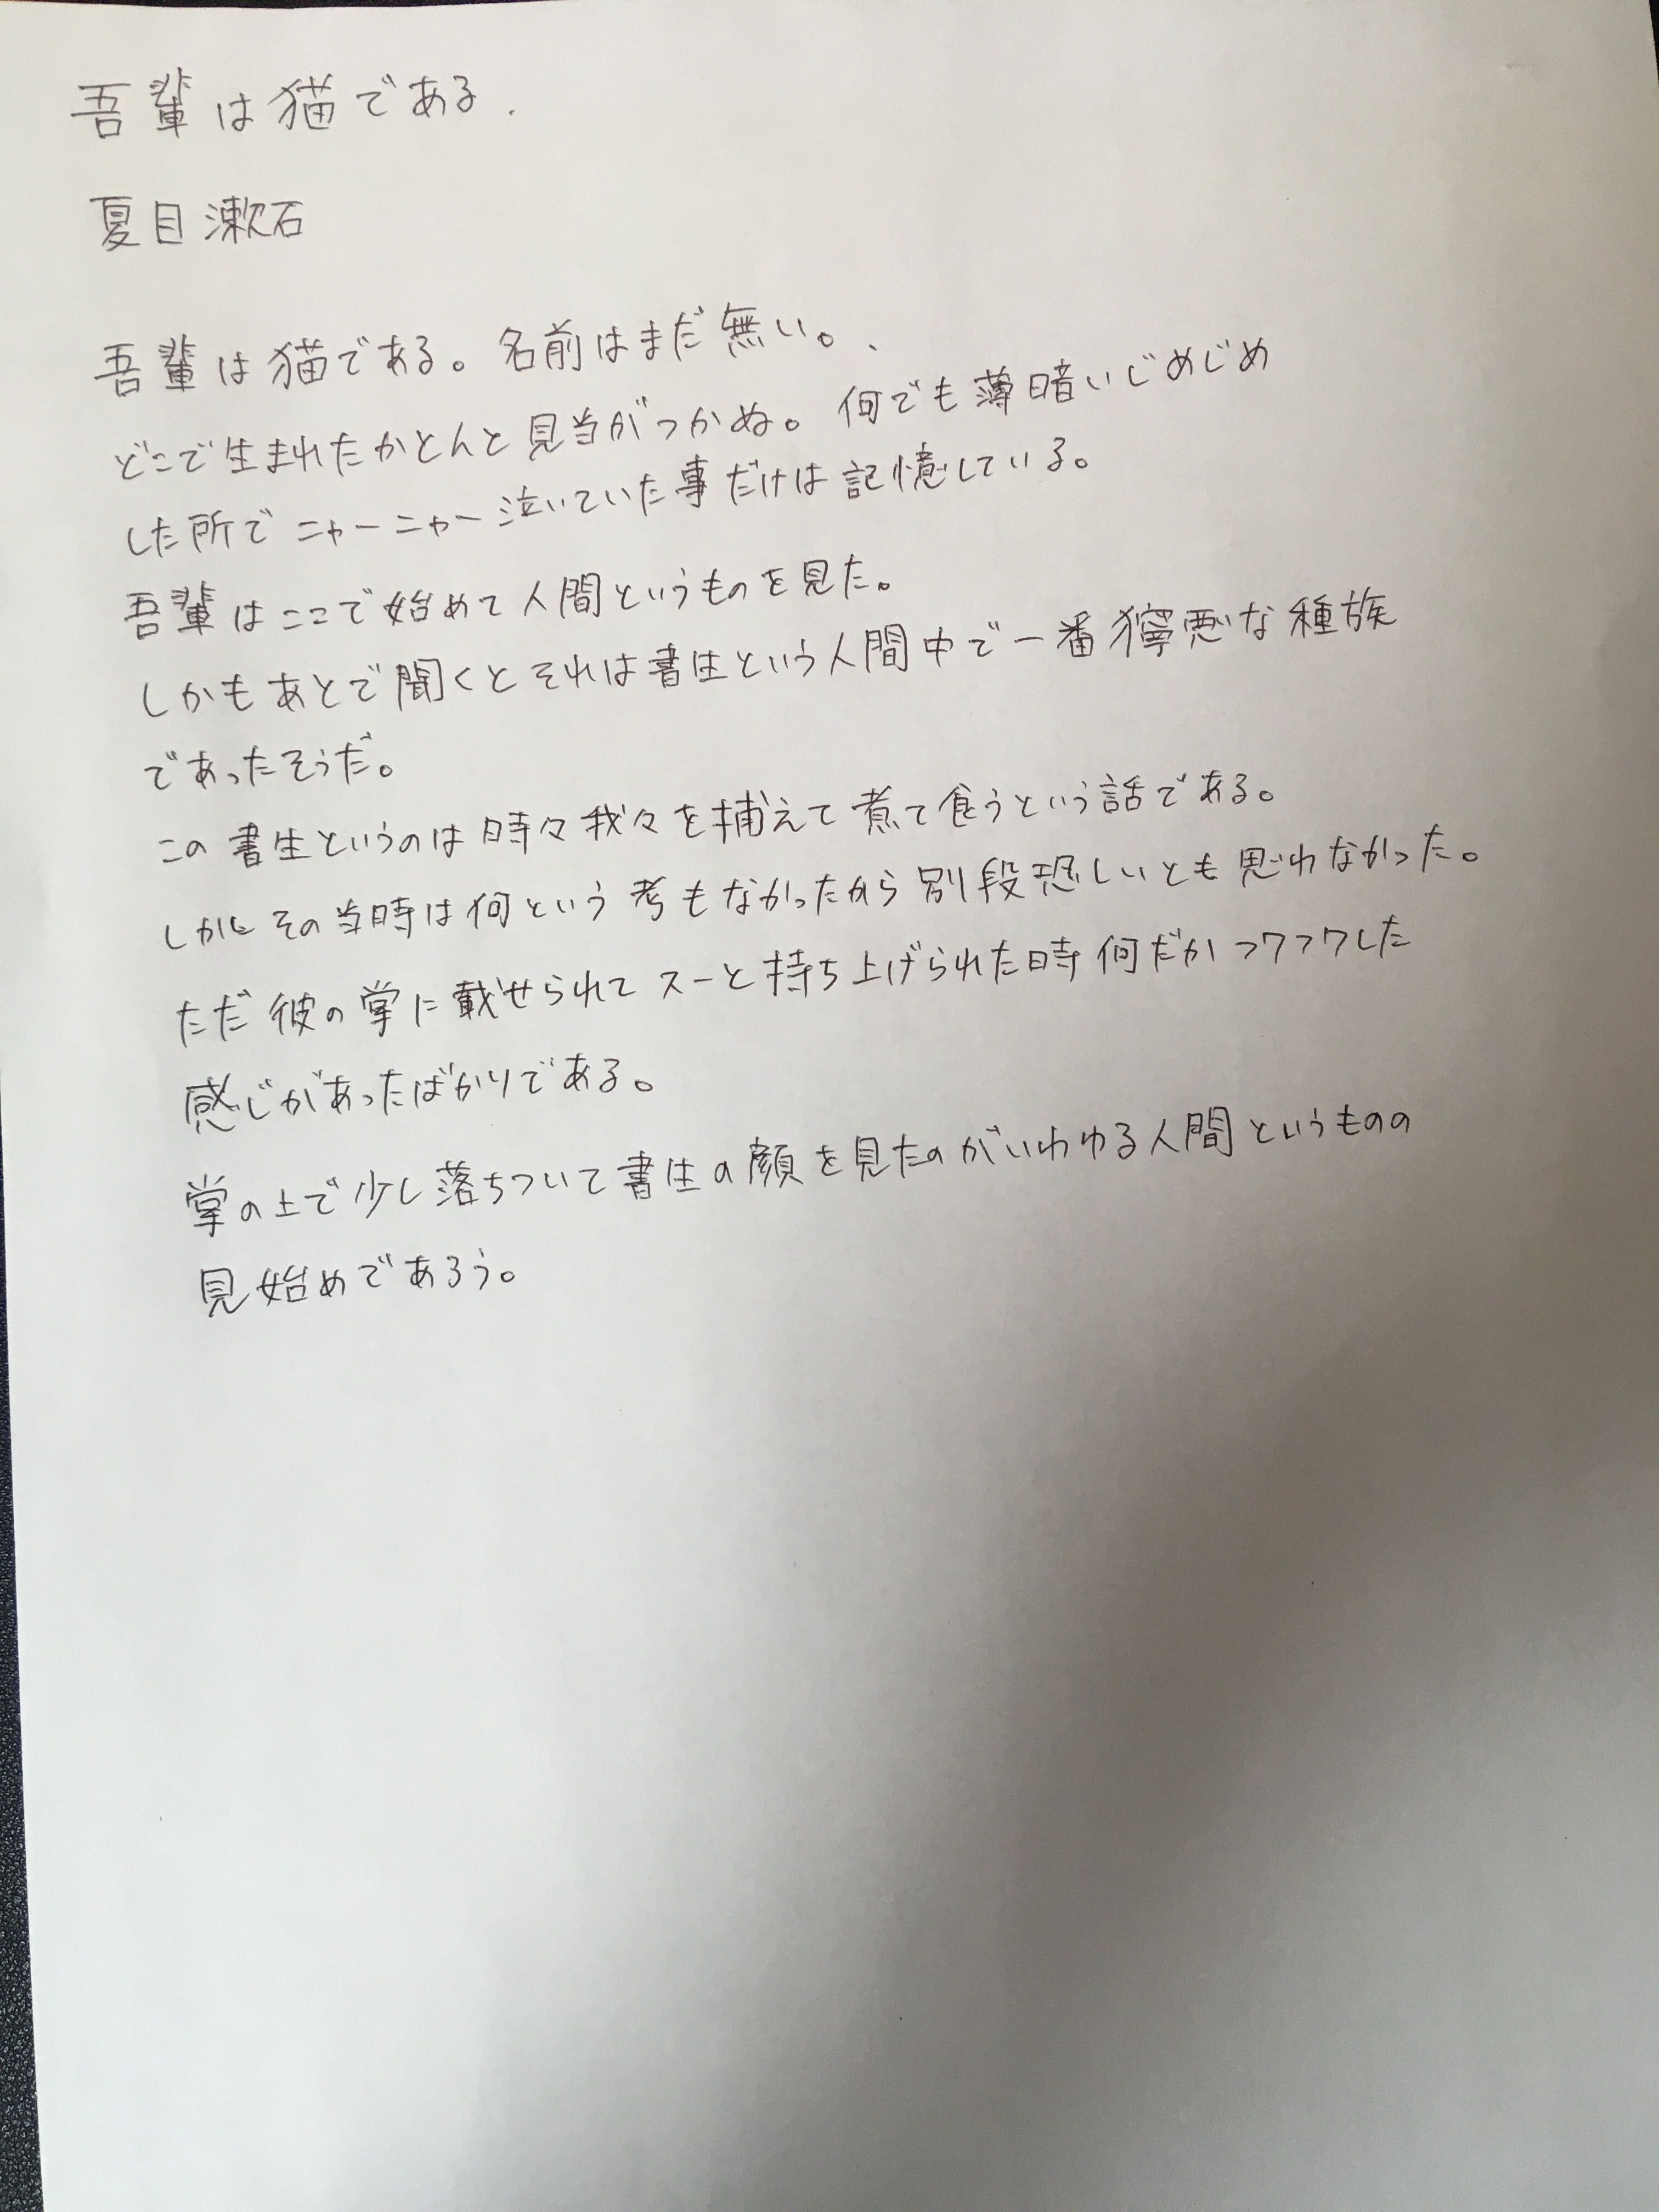 吾輩は猫である.
夏目漱石
吾輩は猫である。名前はまだ無い。、
どこで生まれたかとんと見当がつかぬ。何でも薄暗いじめじめ
した所でニャーニャー泣いていた事だけは記憶している。
吾輩はここで始めて人間というものを見た。
しかもあとで聞くとそれは書生という人間中で一番獰悪な種族
であったそうだ。
この書生というのは時々我々を捕えて煮て食うという話である。
しかしその当時は何という考もなかったから別段恐しいとも思わなかった。
ただ彼の掌に載せられてスーと持ち上げられた時何だかフワフワした
感じがあったばかりである。
掌の上で少し落ちついて書生の顔を見たのがいわゆる人間というものの
見始めであろう。